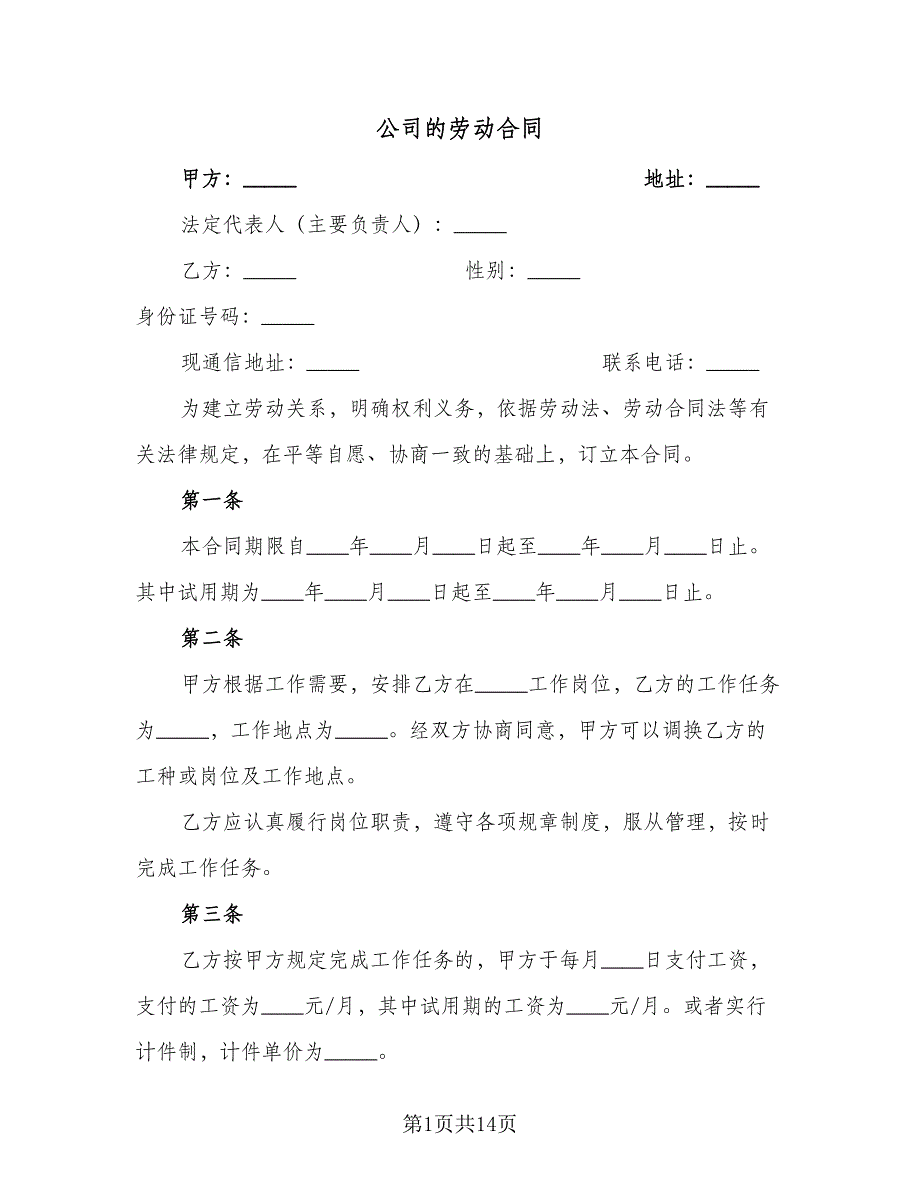 公司的劳动合同
甲方：_____ 地址：_____
法定代表人（主要负责人）：_____
乙方：_____ 性别：_____
身份证号码：_____
现通信地址：_____ 联系电话：_____
为建立劳动关系，明确权利义务，依据劳动法、劳动合同法等有
关法律规定，在平等自愿、协商一致的基础上，订立本合同。
第一条
本合同期限自____年____月____日起至____年____月____日止。
其中试用期为____年____月____日起至____年____月____日止。
第二条
甲方根据工作需要，安排乙方在_____工作岗位，乙方的工作任务
为_____，工作地点为_____。经双方协商同意，甲方可以调换乙方的
工种或岗位及工作地点。
乙方应认真履行岗位职责，遵守各项规章制度，服从管理，按时
完成工作任务。
第三条
乙方按甲方规定完成工作任务的，甲方于每月____日支付工资，
支付的工资为____元/月，其中试用期的工资为____元/月。或者实行
计件制，计件单价为_____。
第1页共14页